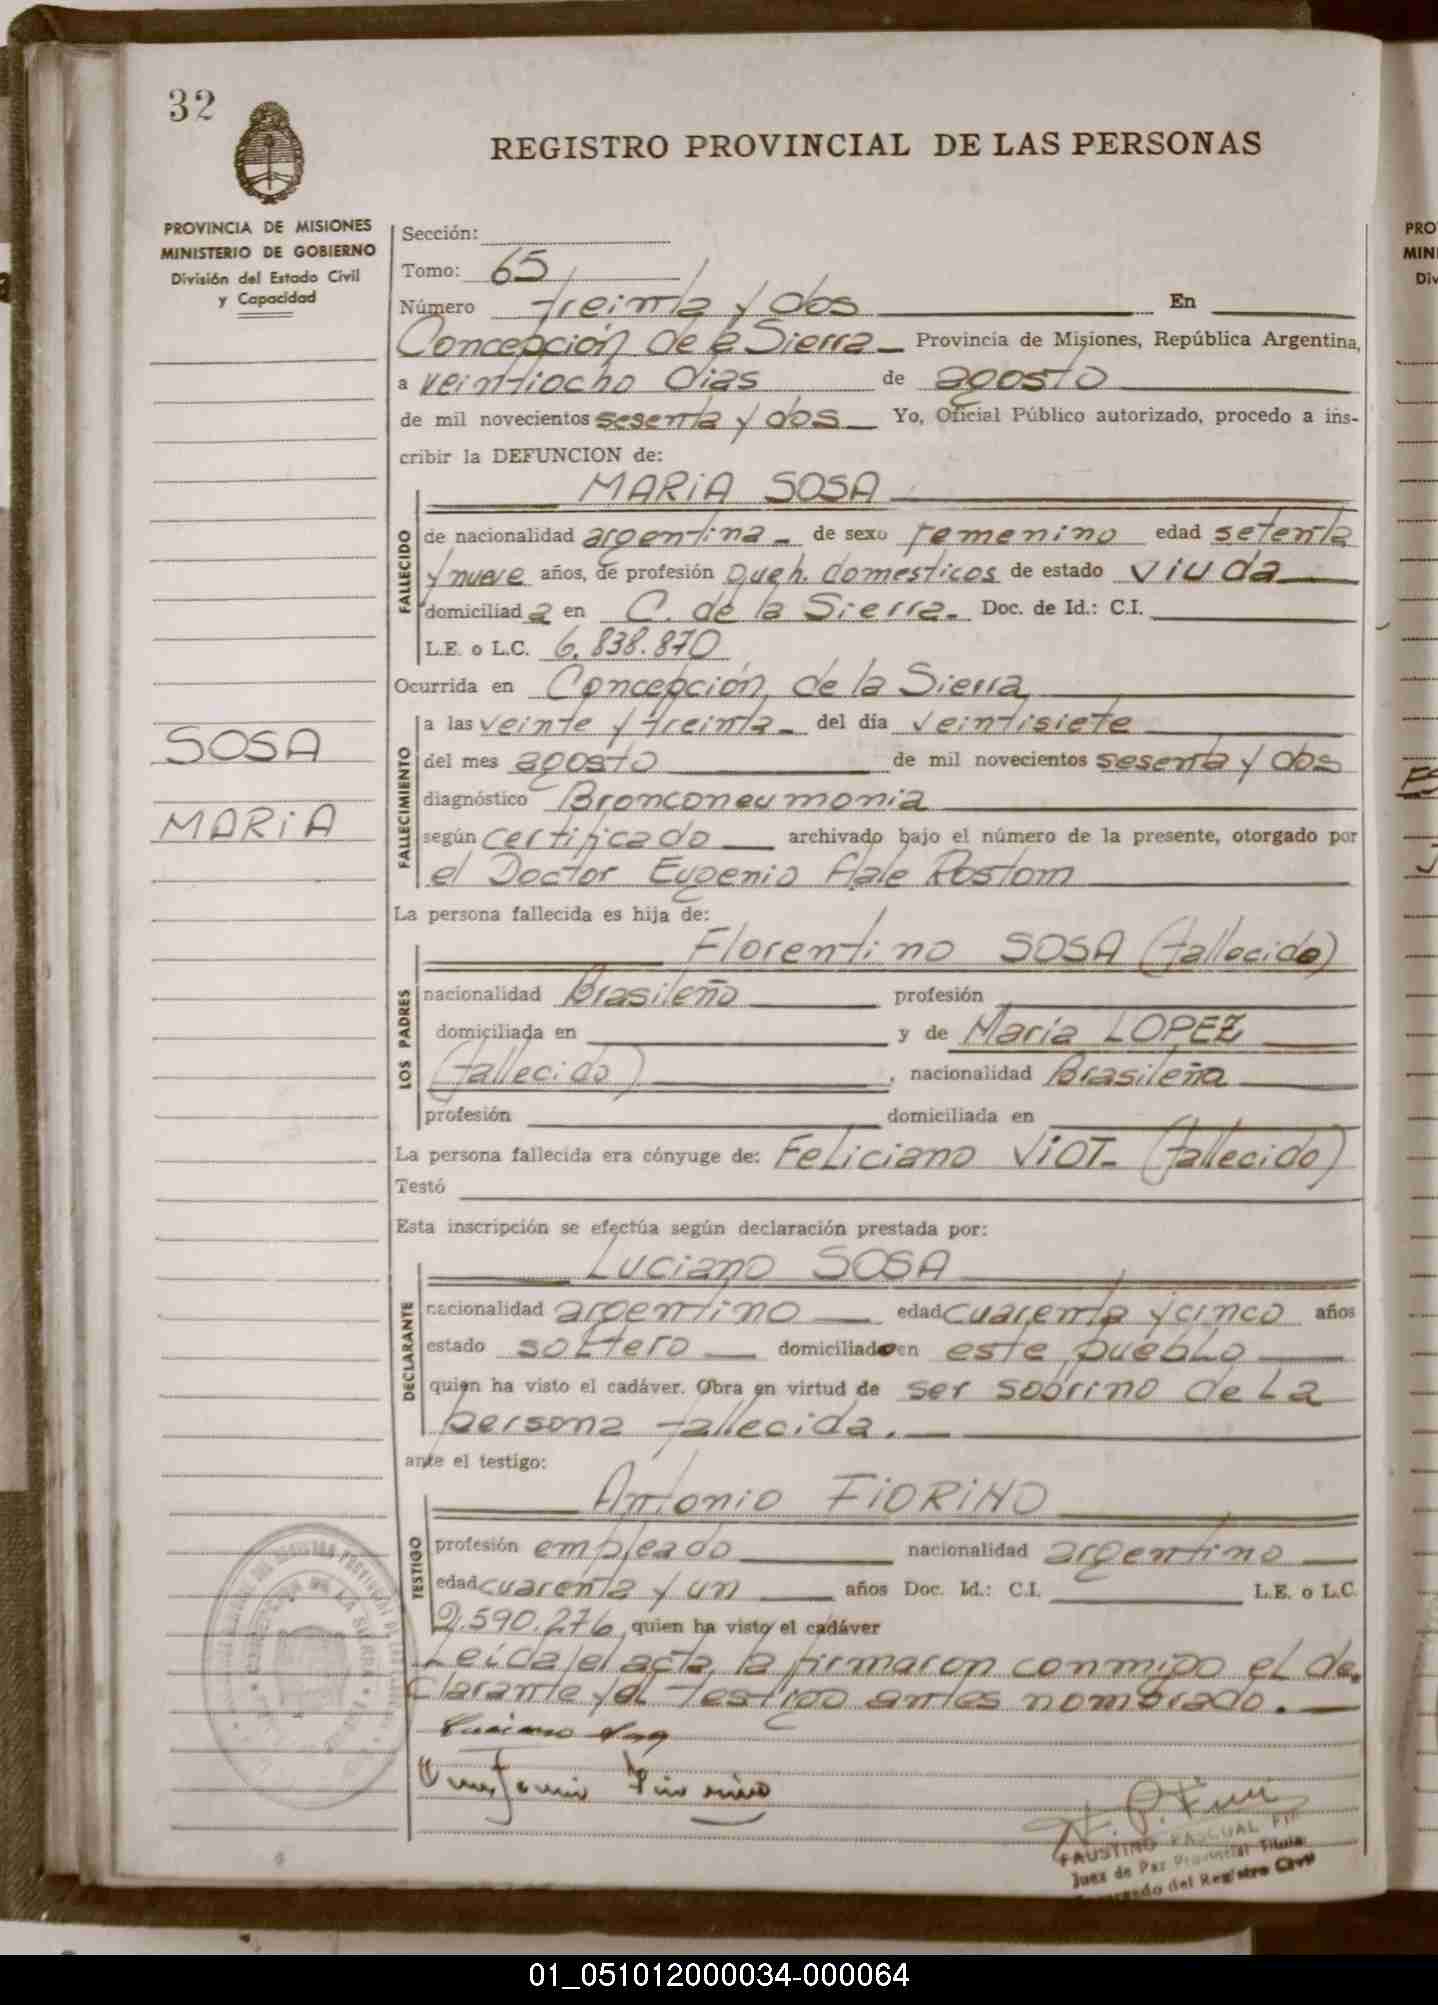 32
REGISTRO PROVINCIAL DE LAS PERSONAS
PROVINCIA DE MISIONES
MINISTERIO DE GOBIERNO
División del Estado Civil
y Capacidad
Sección:
Tomo: 65
Número treinta y dos En
Concepción de la Sierra Provincia de Misiones, República Argentina,
a veintiocho dias de agosto
de mil novecientos sesenta y dos Yo, Oficial Público autorizado, procedo a ins-
cribir la DEFUNCION de:
MARIA SOSA
FALLECIDO
de nacionalidad argentina de sexo femenino edad setenta
y nueve años, de profesión queh. domesticos de estado viuda
domiciliada en C. de la Sierra. Doc. de Id.: C.I.
L.E. o L.C. 6.838.870
Ocurrida en Concepción de la Sierra
FALLECIMIENTO
a las veinte y treinta del día veintisiete
del mes agosto de mil novecientos sesenta y dos
diagnóstico Bronconeumonia
según certificado archivado bajo el número de la presente, otorgado por
el Doctor Eugenio Rostom
SOSA
MARIA
La persona fallecida es hija de:
LOS PADRES
Florentino SOSA (fallecido)
nacionalidad Brasileño profesión
domiciliada en y de Maria LOPEZ
(fallecido), nacionalidad Brasileña
profesión domiciliada en
La persona fallecida era cónyuge de: Feliciano VIOT (fallecido)
Testó
Esta inscripción se efectúa según declaración prestada por:
DECLARANTE
Luciano SOSA
nacionalidad argentino edad cuarenta y cinco años
estado soltero domiciliado en este pueblo
quien ha visto el cadáver. Obra en virtud de ser sobrino de la
persona fallecida.
ante el testigo:
TESTIGO
Antonio FIORINO
profesión empleado nacionalidad argentino
edad cuarenta y un años Doc. Id.: C.I. L.E. o L.C.
2.590.276 quien ha visto el cadáver
Leida el acta, la firmaron conmigo el de-
clarante y el testigo antes nombrado.
FAUSTINO PASCUAL
Juez de Paz Provincial Titular
del Registro Civil
PRO
MINI
Div
01_051012000034-000064